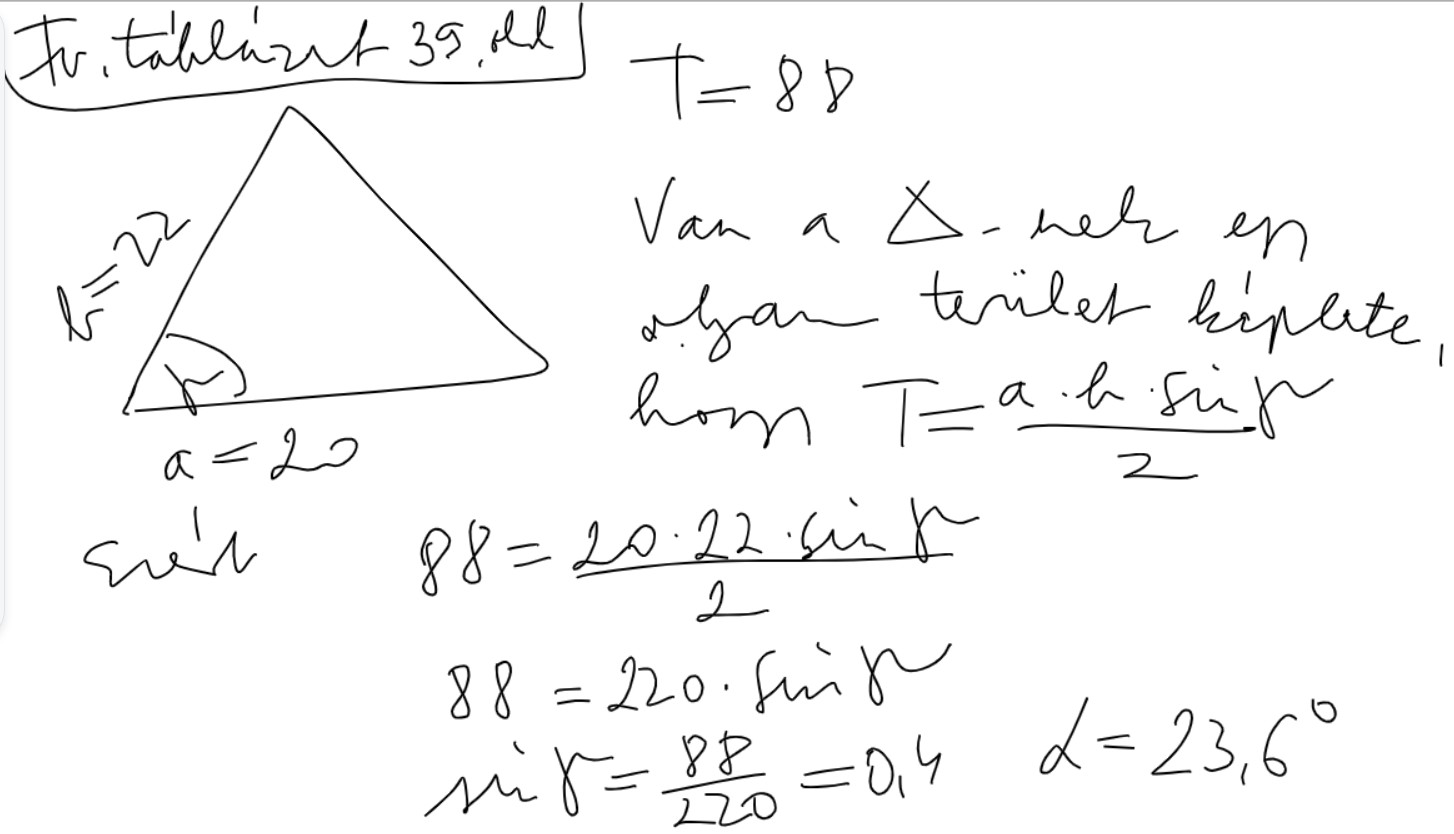 Fv. táblázat 39. old
T = 88
Van a Δ-nek egy
olyan terület képlete,
hogy T = a · b · sin γ / 2
b = 22
γ
a = 20
88 = 20 · 22 · sin γ / 2
88 = 220 · sin γ
sin γ = 88 / 220 = 0,4
α = 23,6°